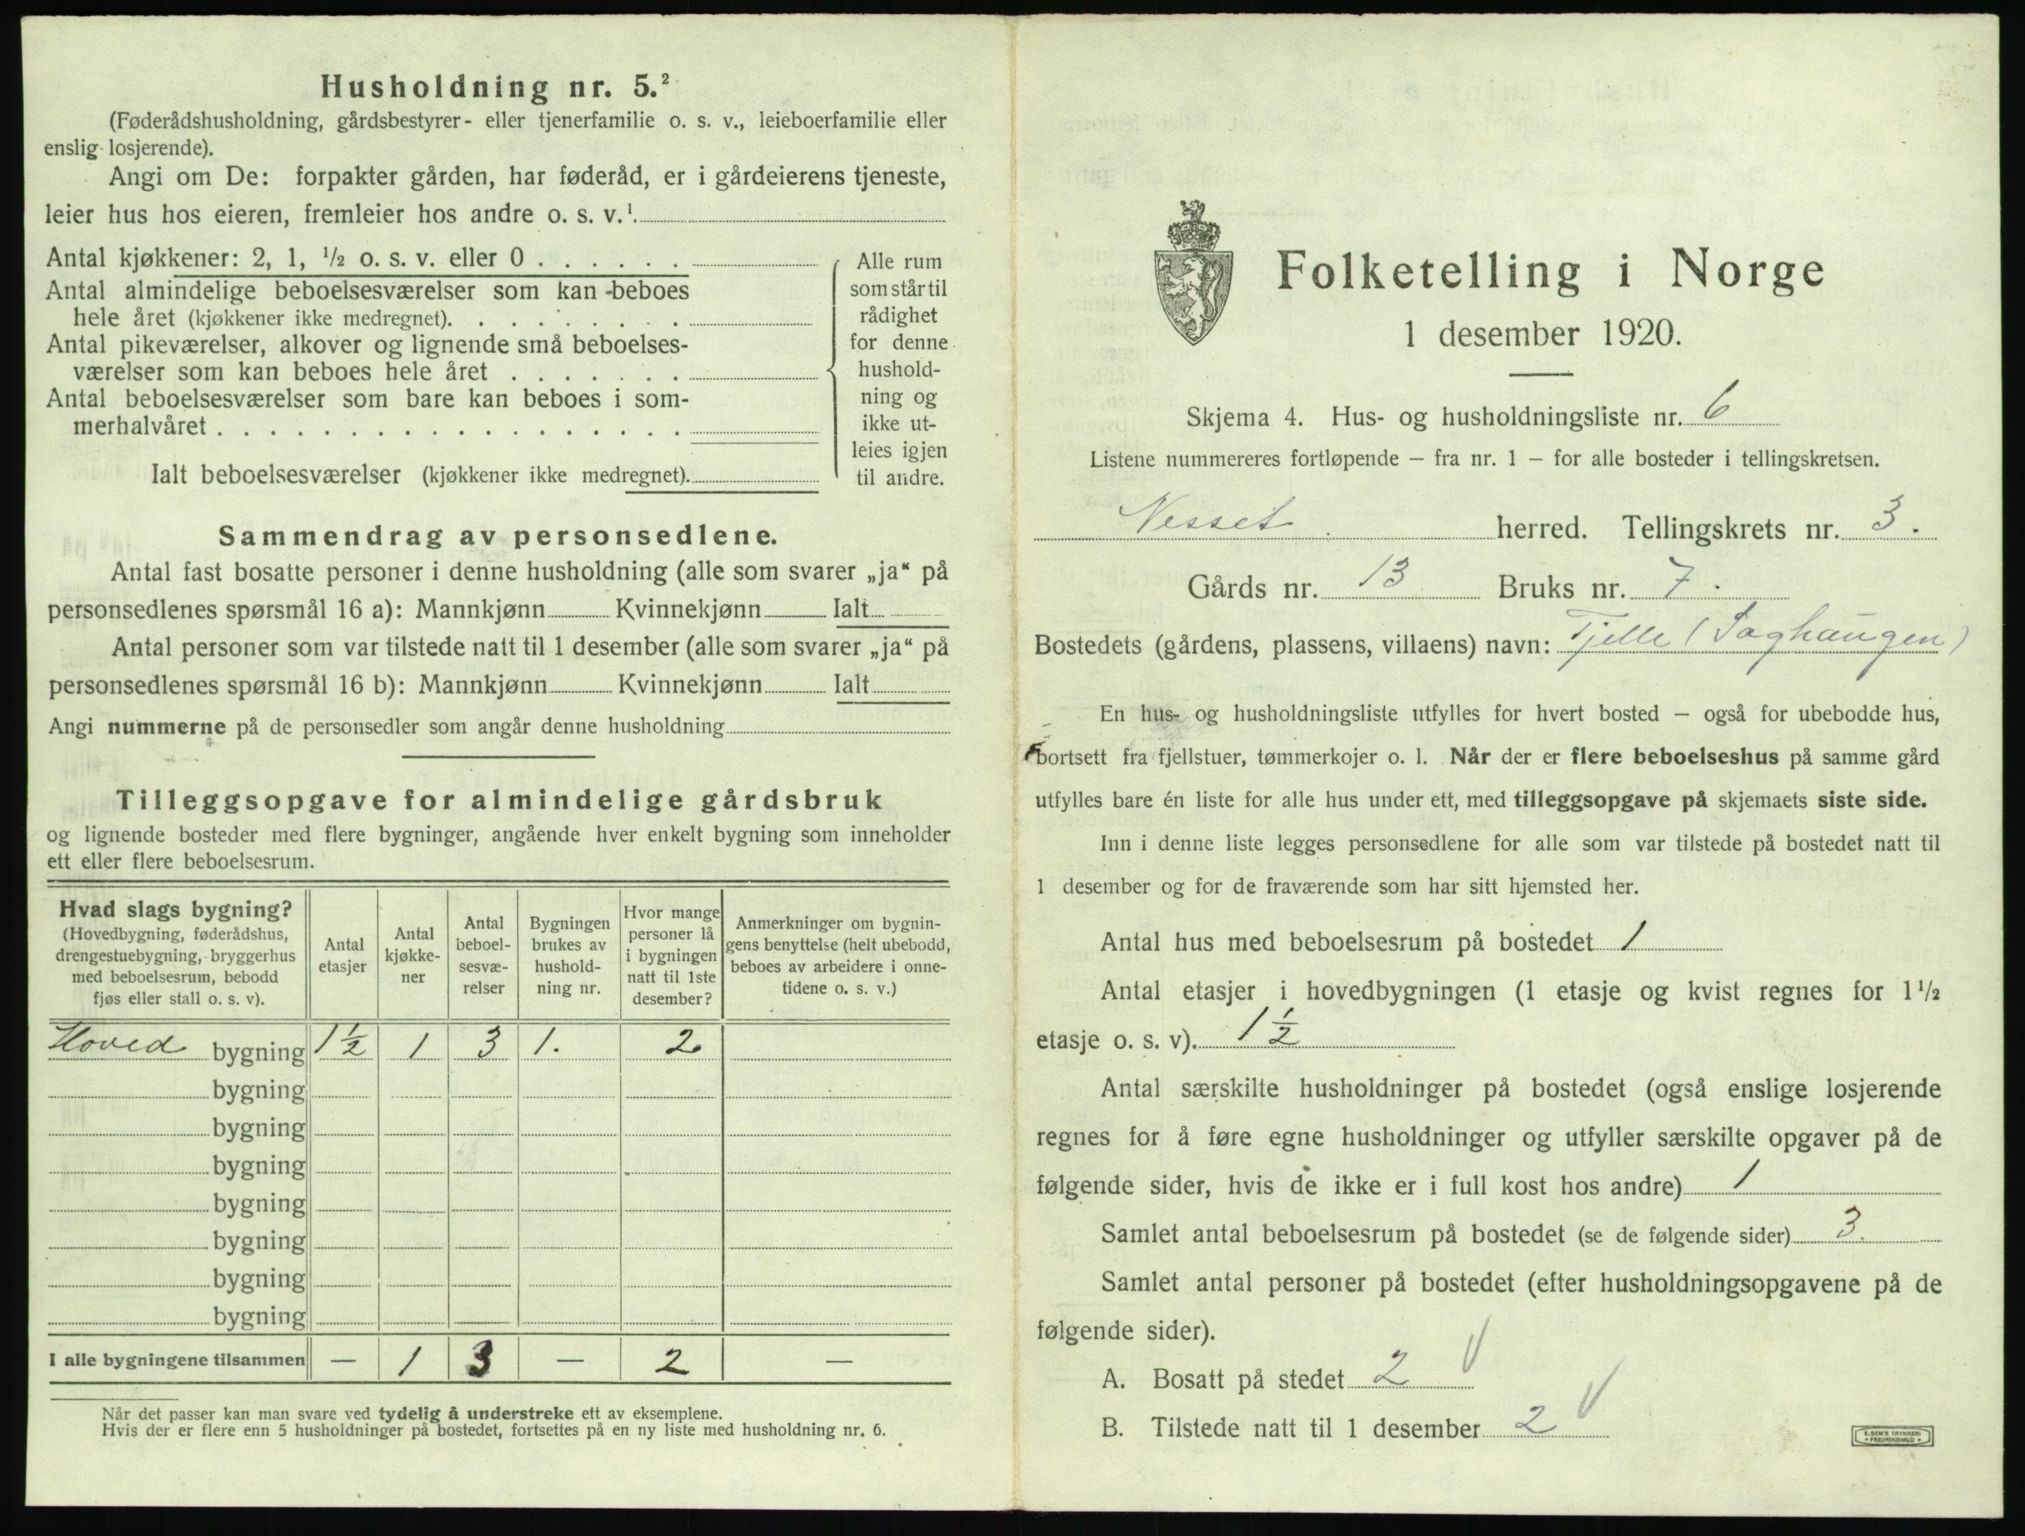 Husholdning nr. 5.²
(Føderådshusholdning, gårdsbestyrer- eller tjenerfamilie o. s. v., leieboerfamilie eller
enslig losjerende).
Angi om De: forpakter gården, har føderåd, er i gårdeierens tjeneste,
leier hus hos eieren, fremleier hos andre o. s. v.¹
Antal kjøkkener: 2, 1, ½ o. s. v. eller 0 . . . . . .
Antal almindelige beboelsesværelser som kan beboes
hele året (kjøkkener ikke medregnet). . . . . . . . .
Antal pikeværelser, alkover og lignende små beboelses-
værelser som kan beboes hele året . . . . . . .
Antal beboelsesværelser som bare kan beboes i som-
merhalvåret . . . . . . . . . . . . . . . . . .
Ialt beboelsesværelser (kjøkkener ikke medregnet).
Alle rum
som står til
rådighet
for denne
hushold-
ning og
ikke ut-
leies igjen
til andre.
Sammendrag av personsedlene.
Antal fast bosatte personer i denne husholdning (alle som svarer „ja“ på
personsedlenes spørsmål 16 a): Mannkjønn Kvinnekjønn Ialt
Antal personer som var tilstede natt til 1 desember (alle som svarer „ja“ på
personsedlenes spørsmål 16 b): Mannkjønn Kvinnekjønn Ialt
Angi nummerne på de personsedler som angår denne husholdning
Tilleggsopgave for almindelige gårdsbruk
og lignende bosteder med flere bygninger, angående hver enkelt bygning som inneholder
ett eller flere beboelsesrum.
Hvad slags bygning?
(Hovedbygning, føderådshus,
drengestuebygning, bryggerhus
med beboelsesrum, bebodd
fjøs eller stall o. s. v).
Antal
etasjer
Antal
kjøkke-
ner
Antal
beboel-
sesvæ-
relser
Bygningen
brukes av
hushold-
ning nr.
Hvor mange
personer lå
i bygningen
natt til 1ste
desember?
Anmerkninger om bygnin-
gens benyttelse (helt ubebodd,
beboes av arbeidere i onne-
tidene o. s. v.)
Hoved bygning 1½ 1 3 1. 2
bygning
bygning
bygning
bygning
bygning
bygning
bygning
I alle bygningene tilsammen — 1 3 — 2 —
Når det passer kan man svare ved tydelig å understreke ett av eksemplene.
Hvis der er flere enn 5 husholdninger på bostedet, fortsettes på en ny liste med husholdning nr. 6.
Folketelling i Norge
1 desember 1920.
Skjema 4. Hus- og husholdningsliste nr. 6
Listene nummereres fortløpende — fra nr. 1 — for alle bosteder i tellingskretsen.
Nesset herred. Tellingskrets nr. 3.
Gårds nr. 13 Bruks nr. 7.
Bostedets (gårdens, plassens, villaens) navn: Tjelle (Saghaugen)
En hus- og husholdningsliste utfylles for hvert bosted — også for ubebodde hus,
bortsett fra fjellstuer, tømmerkojer o. l. Når der er flere beboelseshus på samme gård
utfylles bare én liste for alle hus under ett, med tilleggsopgave på skjemaets siste side.
Inn i denne liste legges personsedlene for alle som var tilstede på bostedet natt til
1 desember og for de fraværende som har sitt hjemsted her.
Antal hus med beboelsesrum på bostedet 1
Antal etasjer i hovedbygningen (1 etasje og kvist regnes for 1½
etasje o. s. v). 1½
Antal særskilte husholdninger på bostedet (også enslige losjerende
regnes for å føre egne husholdninger og utfyller særskilte opgaver på de
følgende sider, hvis de ikke er i full kost hos andre) 1
Samlet antal beboelsesrum på bostedet (se de følgende sider) 3.
Samlet antal personer på bostedet (efter husholdningsopgavene på de
følgende sider).
A. Bosatt på stedet 2
B. Tilstede natt til 1 desember 2
E. SEM'S TRYKKERI
FREDRIKSHALD